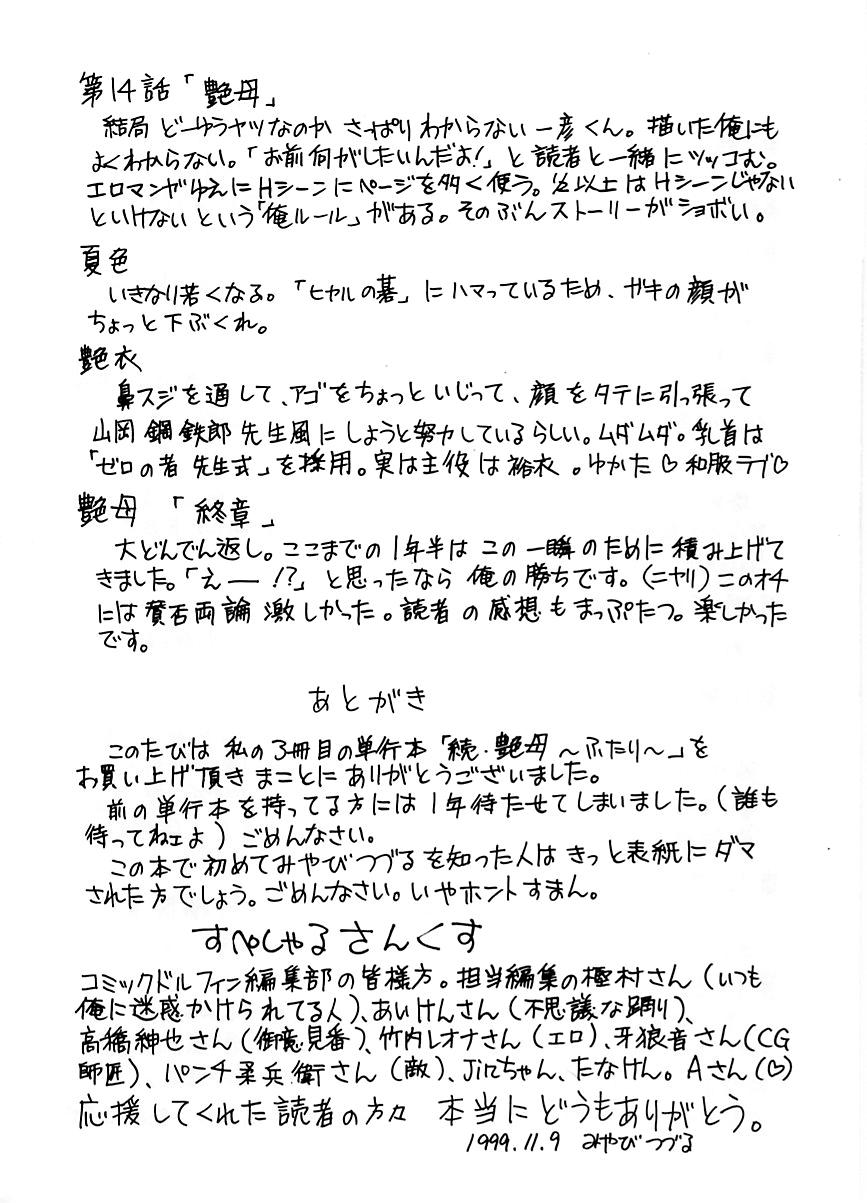 第14話「艶母」
結局 どーゆうヤツなのか さっぱり わからない 一彦くん。描いた俺にも
よくわからない。「お前何がしたいんだよ!」と読者と一緒にツッコむ。
エロマンガゆえにHシーンにページを多く使う。½以上はHシーンじゃない
といけないという「俺ルール」がある。そのぶんストーリーがショボい。
夏色
いきなり若くなる。「ヒカルの碁」にハマっているため、ガキの顔が
ちょっと下ぶくれ。
艶衣
鼻スジを通して、アゴをちょっといじって、顔をタテに引っ張って
山岡鋼鉄郎先生風にしようと努力しているらしい。ムダムダ。乳首は
「ゼロの者 先生式」を採用。実は主役は裕衣。ゆかた♡和服ラブ♡
艶母 「終章」
大どんでん返し。ここまでの1年半はこの一瞬のために積み上げて
きました。「えー!?」と思ったなら俺の勝ちです。(ニヤリ)このオチ
には賛否両論激しかった。読者の感想もまっぷたつ。楽しかった
です。
あとがき
このたびは 私の3冊目の単行本「続・艶母~ふたり~」を
お買い上げ頂きまことにありがとうございました。
前の単行本を持ってる方には1年待たせてしまいました。(誰も
待ってねェよ)ごめんなさい。
この本で初めてみやびつづるを知った人はきっと表紙にダマ
された方でしょう。ごめんなさい。いやホントすまん。
すぺしゃるさんくす
コミックドルフィン編集部の皆様方。担当編集の極村さん(いつも
俺に迷惑かけられてる人)、あいけんさん(不思議な踊り)、
高橋紳也さん(御意見番)、竹内レオナさん(エロ)、牙狼音さん(CG
師匠)、パンチ柔兵衛さん(敵)、Jinちゃん、たなけん。Aさん(♡)
応援してくれた読者の方々 本当にどうもありがとう。
1999.11.9 みやびつづる